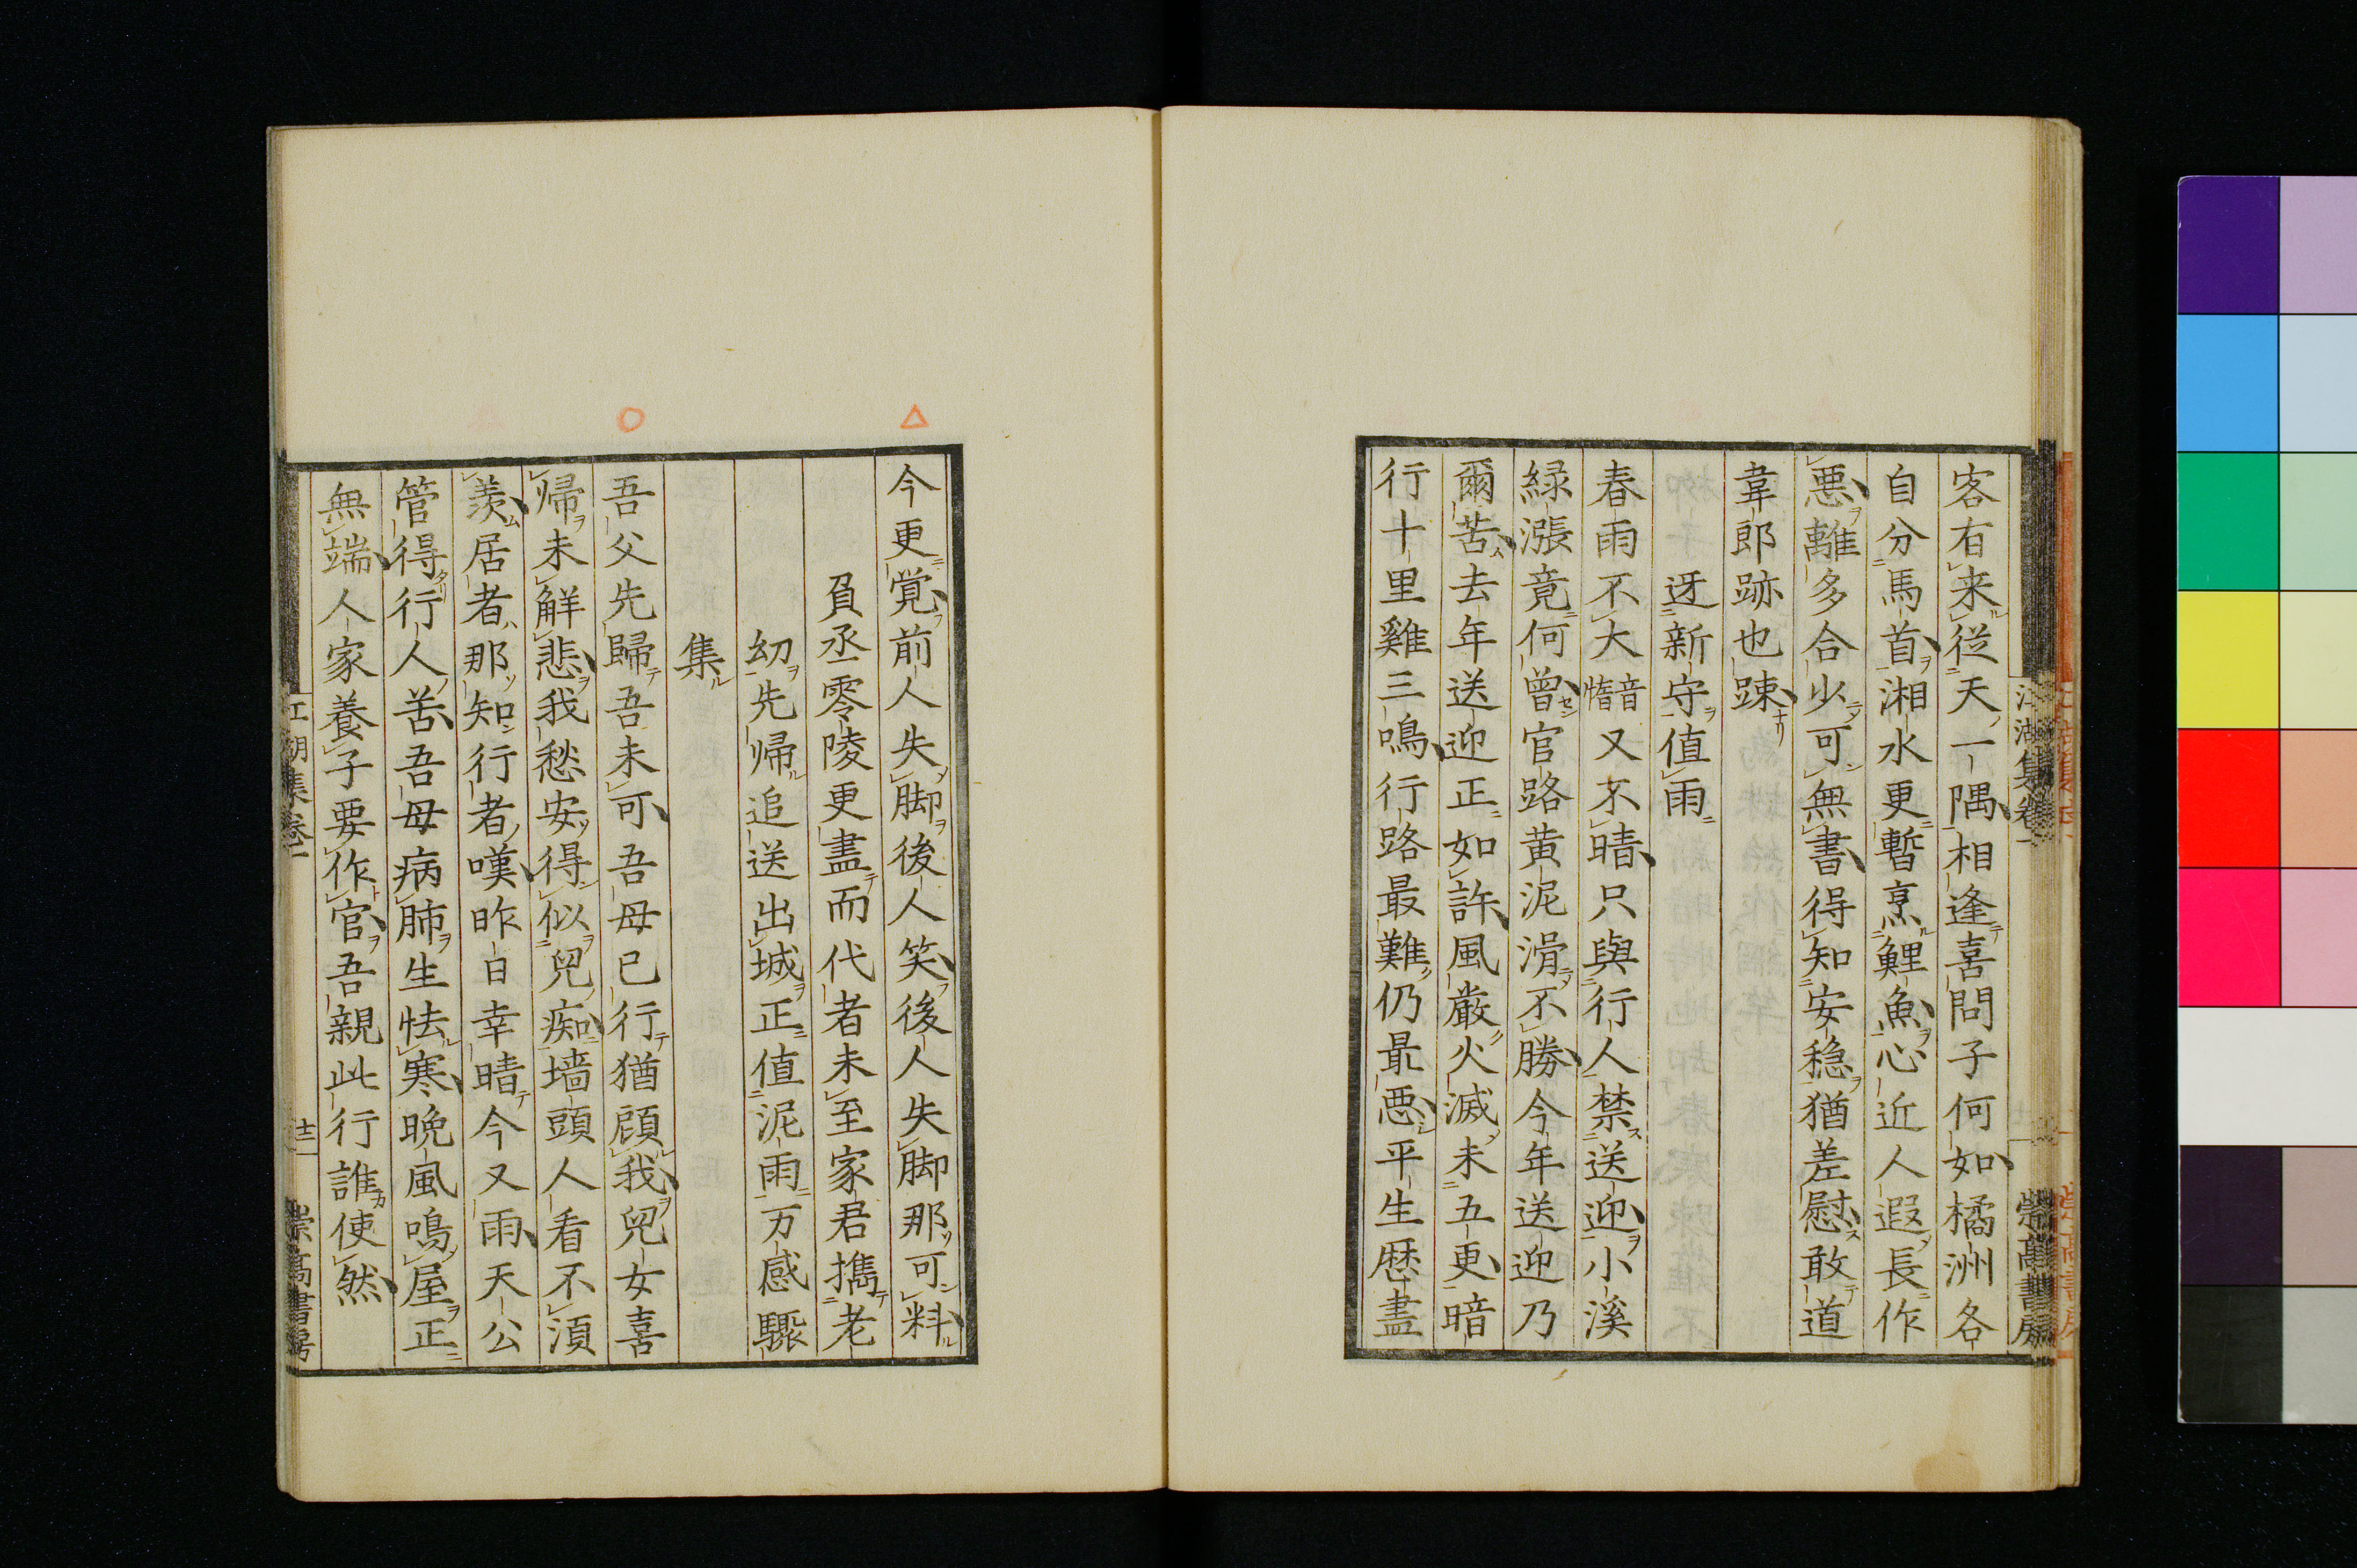 客有来従天一隅相逢喜問子何如橘洲各
自分馬首湘水更暫烹鯉魚心近人遐長作
悪離多合少可無書得知安穏猶差慰敢道
韋郎跡也踈
迓新守値雨
春雨不大音惰又不晴只與行人禁送迎小溪
緑漲竟何曾官路黄泥滑不勝今年送迎乃
爾苦去年送迎正如許風厳火滅未五更暗
行十里雞三鳴行路最難仍最悪平生歴盡
今更覚前人失脚後人笑後人失脚那可料
負丞零陵更盡而代者未至家君擕老
幼先帰追送出城正値泥雨万感驟
集
吾父先歸吾未可吾母已行猶顧我兒女喜
帰未解悲我愁安得似兒痴墻頭人看不湏
羨居者那知行者嘆昨日幸晴今又雨天公
管得行人苦吾母病肺生怯寒晩風鳴屋正
無端人家養子要作官吾親此行誰使然
江湖集巻一
十三
崇高書房